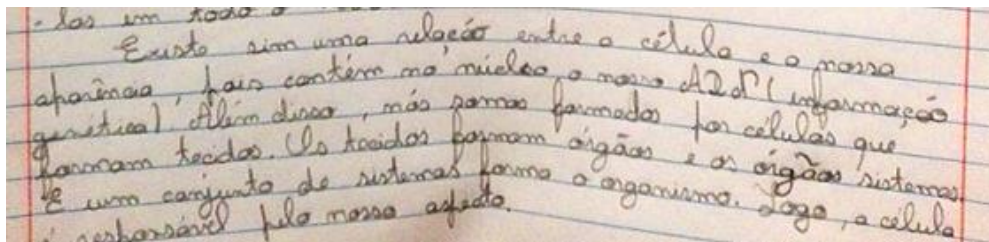 -las em todo o
Existe sim uma relação entre a célula e a nossa
aparência, pois contém no núcleo, o nosso ADN (informação
genética). Além disso, nós somos formados por células que
formam tecidos. Os tecidos formam órgãos e os órgãos sistemas.
E um conjunto de sistemas forma o organismo. Logo, a célula
é responsável pelo nosso aspecto.